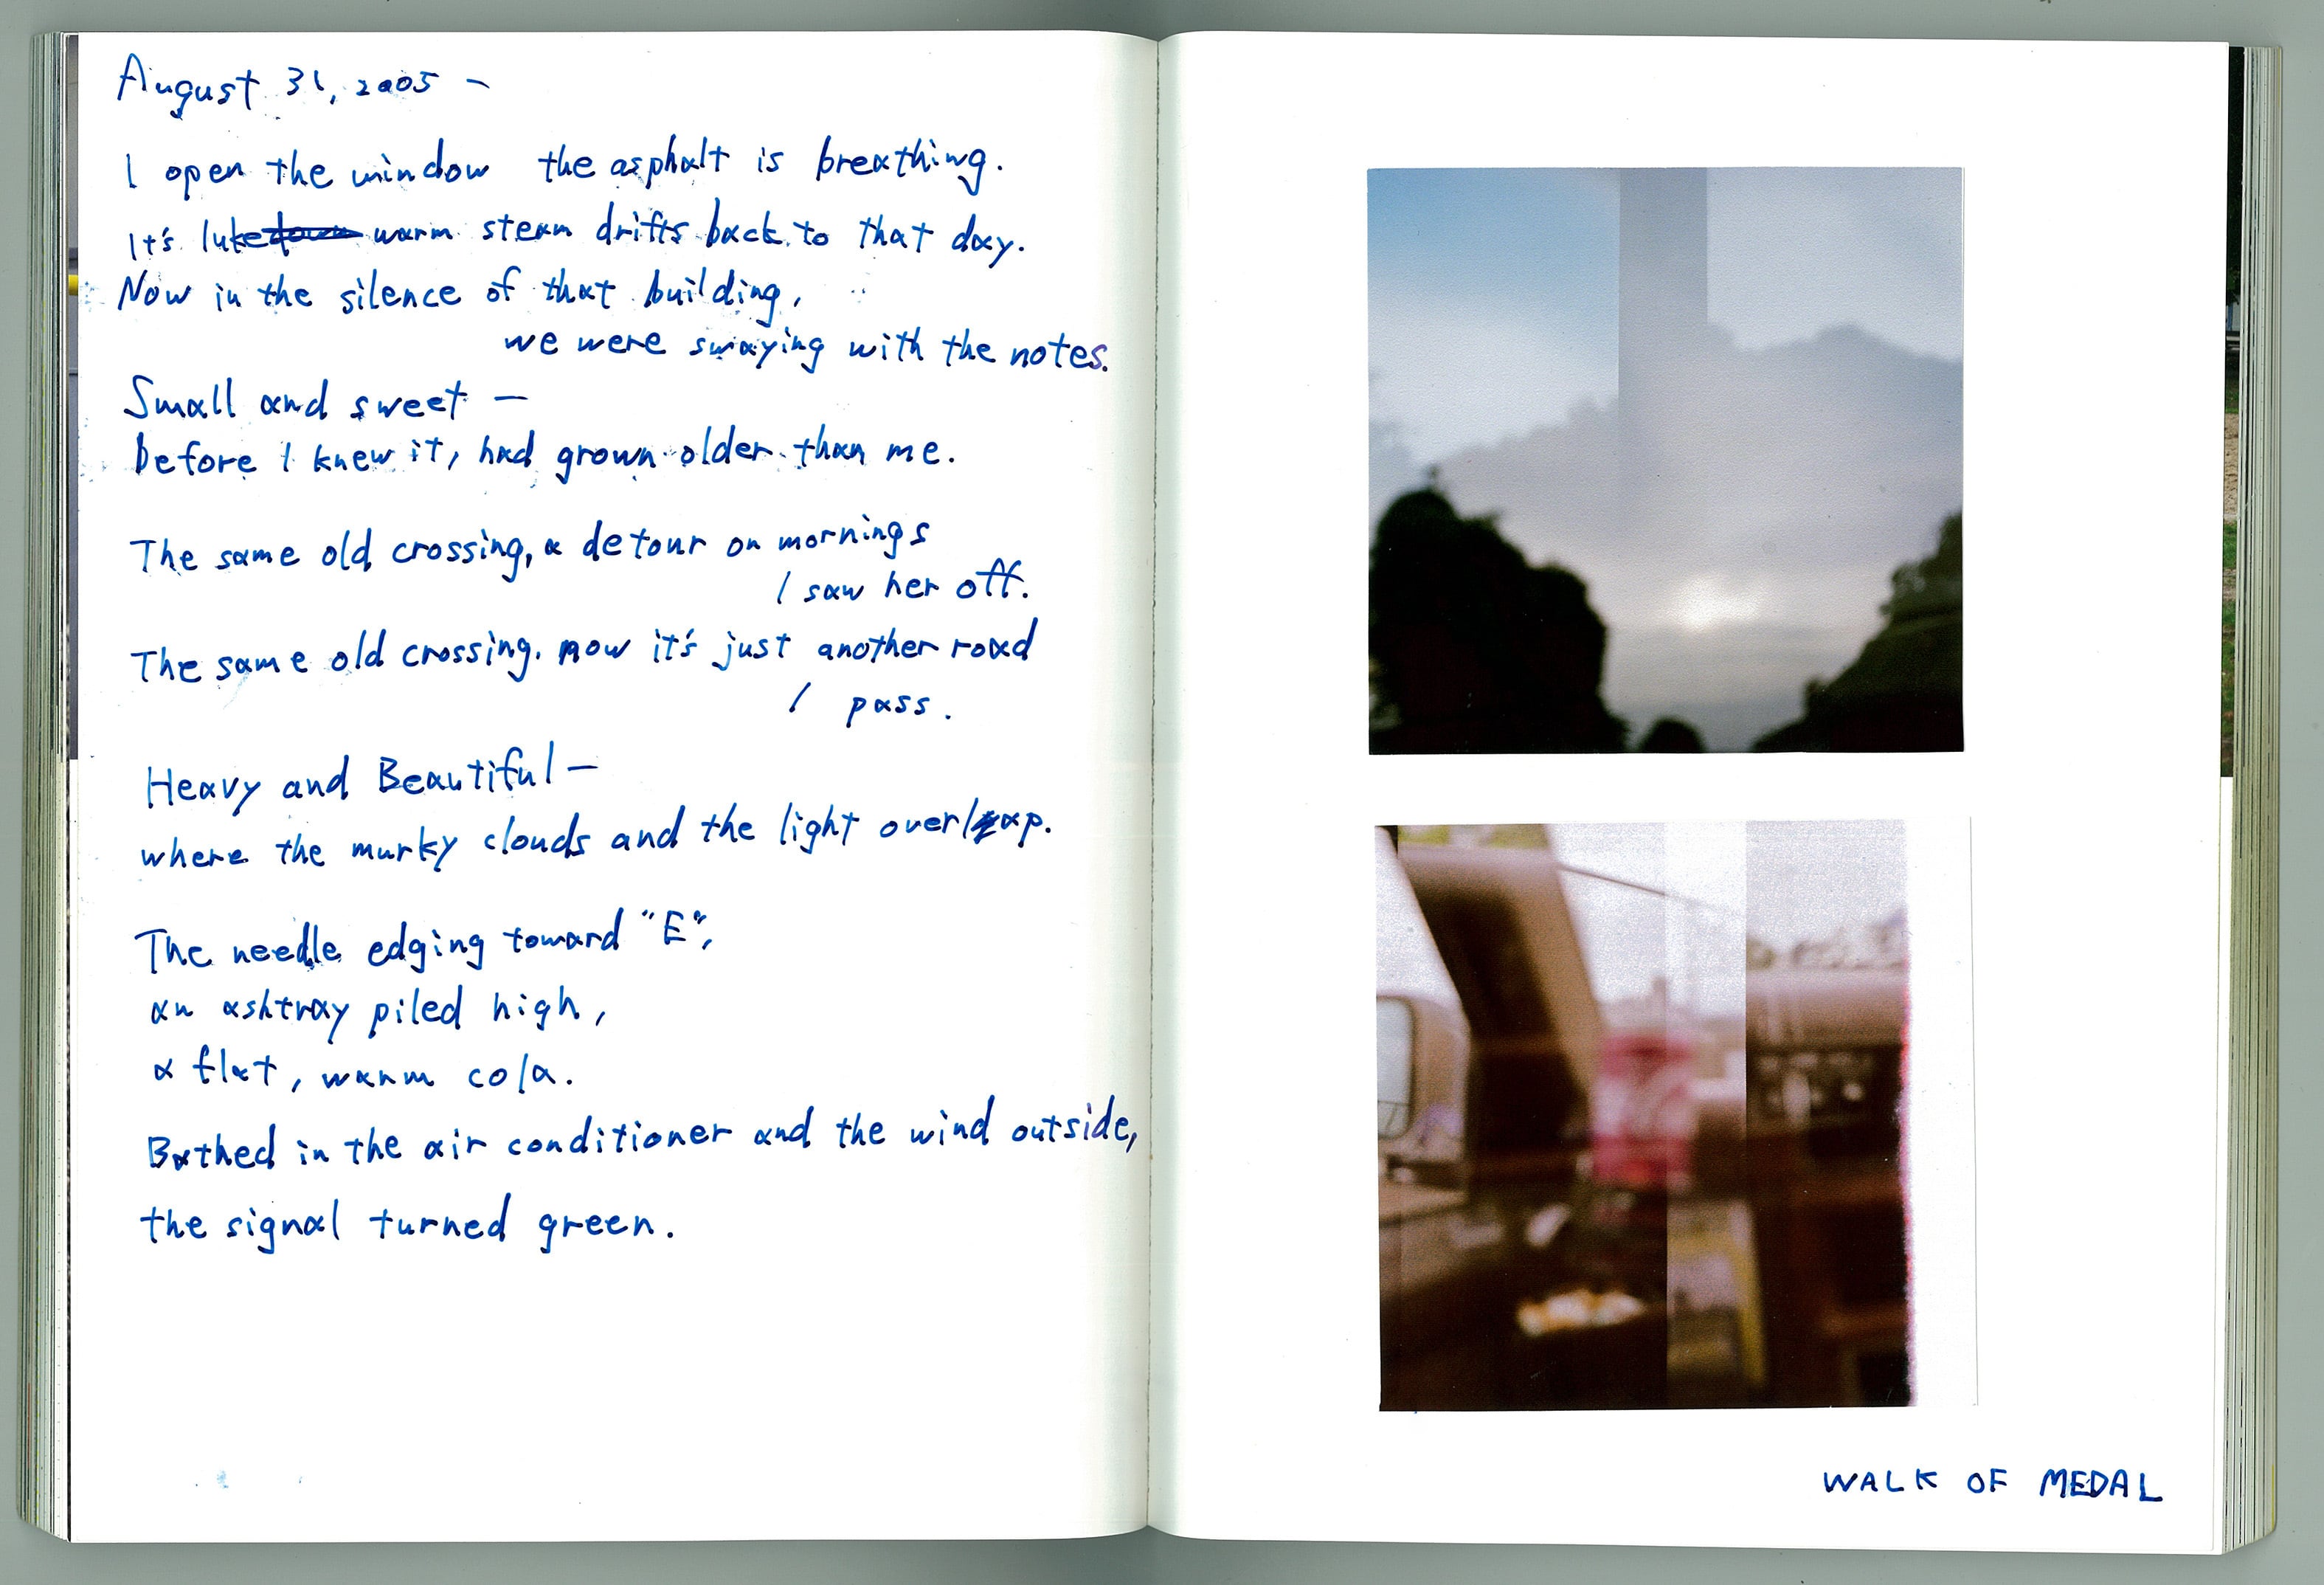 August 31, 2005 —
I open the window the asphalt is breathing.
It's lukewarm steam drifts back to that day.
Now in the silence of that building,
we were swaying with the notes.
Small and sweet —
before I knew it, had grown older than me.
The same old crossing, a detour on mornings
I saw her off.
The same old crossing. now it's just another road
I pass.
Heavy and Beautiful —
where the murky clouds and the light overlap.
The needle edging toward "E",
an ashtray piled high,
a flat, warm cola.
Bathed in the air conditioner and the wind outside,
the signal turned green.
WALK OF MEDAL